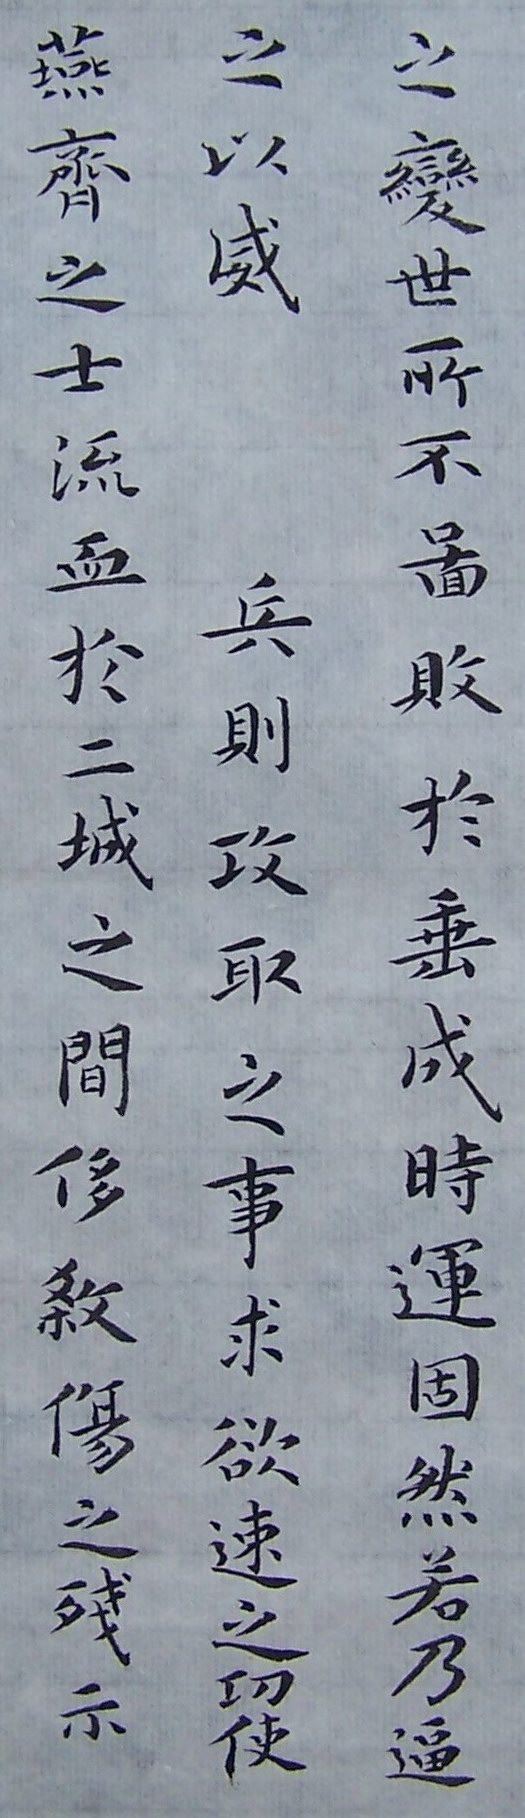 之變世所不啚敗於垂成時運固然若乃逼
之以威　　兵則攻取之事求欲速之功使
燕齊之士流血於二城之間侈敘傷之殘示